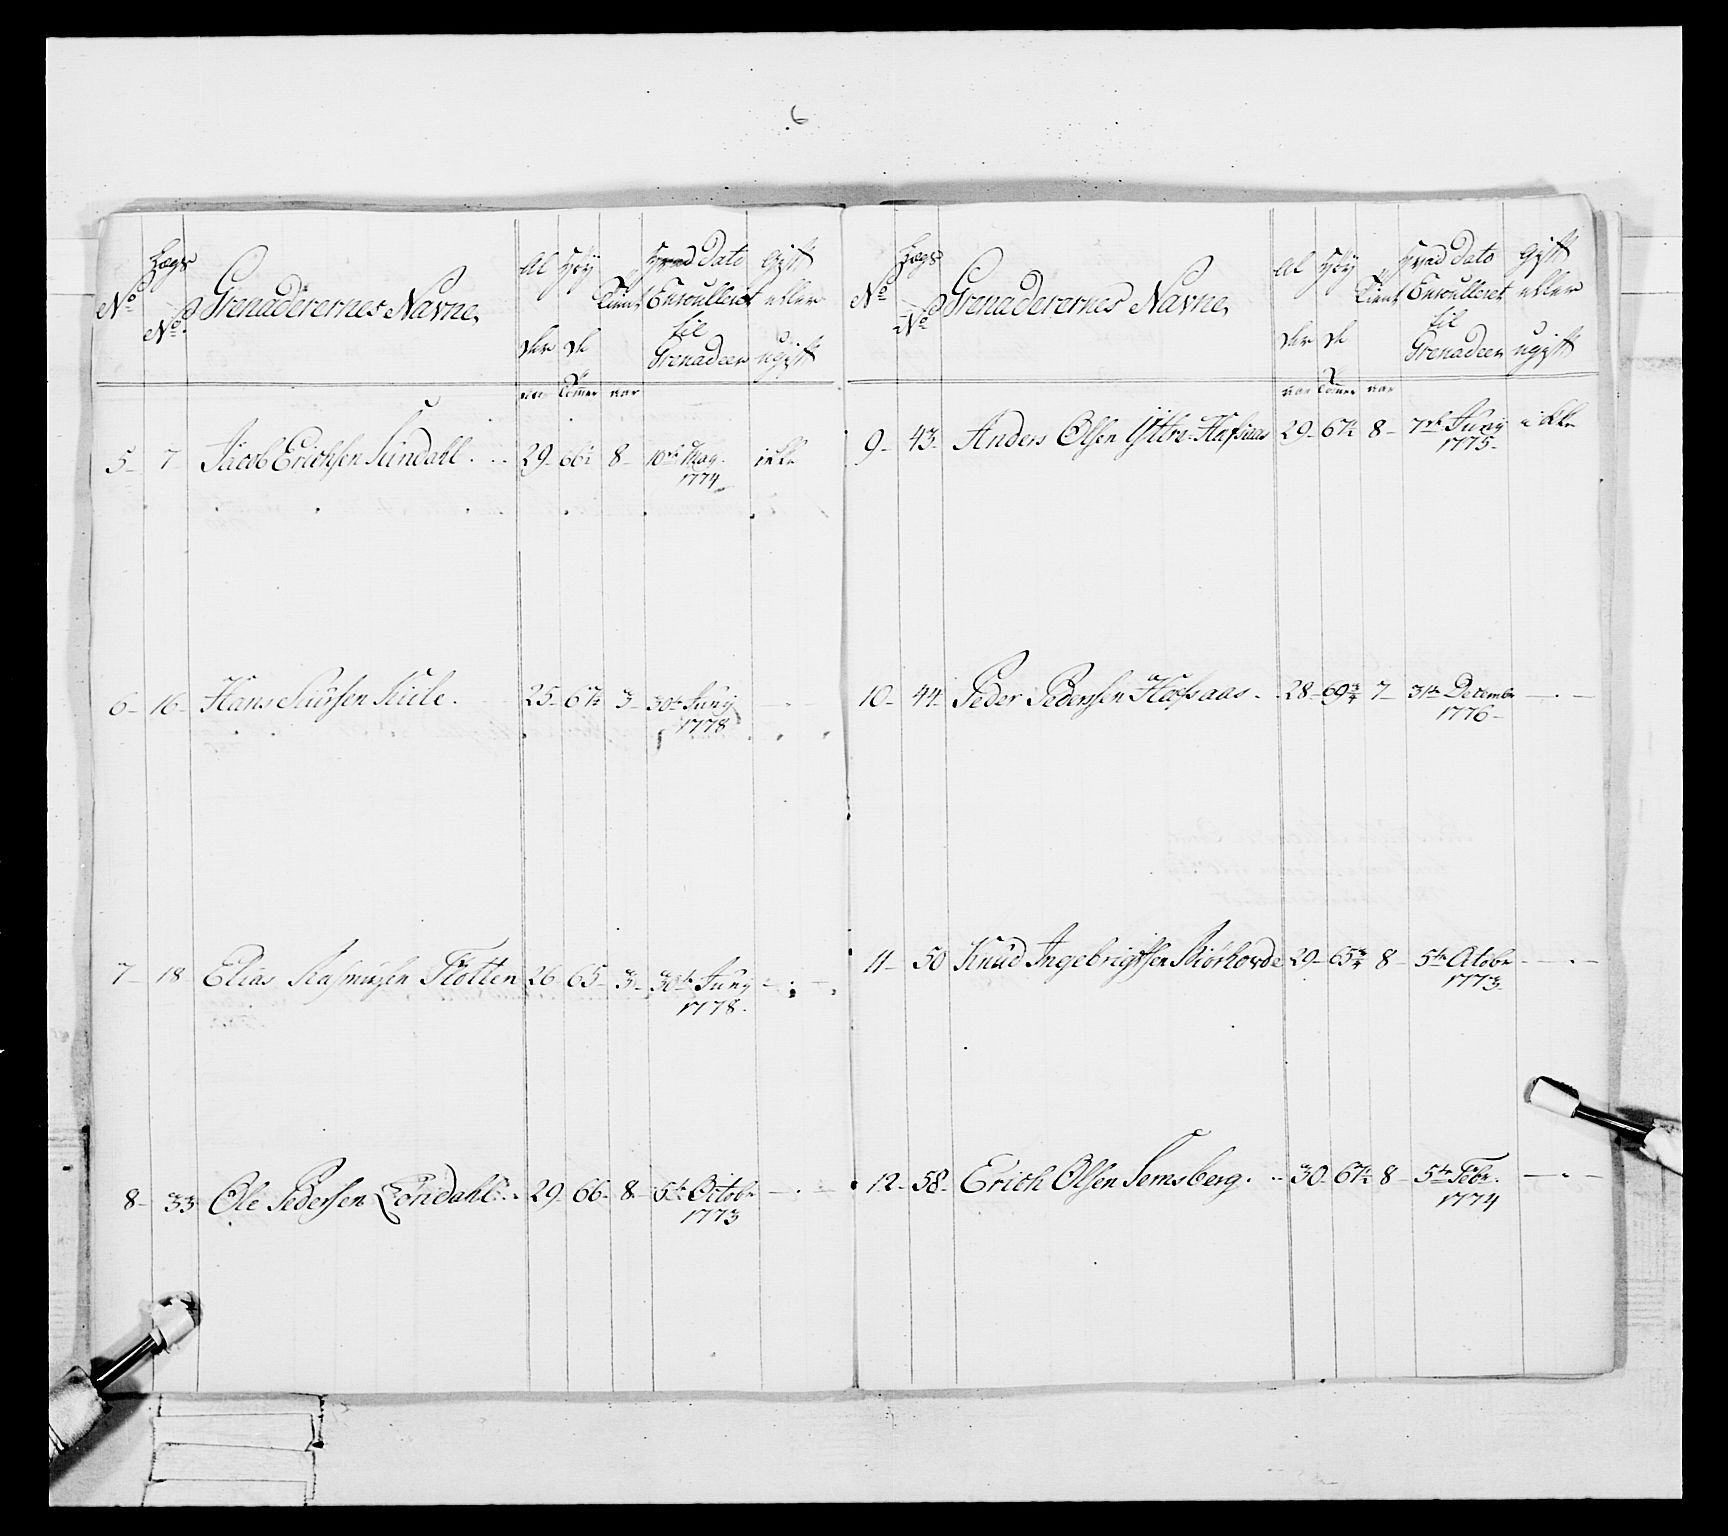 6
No Lægs No Grenaderernes Navne, Al der Høy de Tient Hvad Dato Enroulleret til Grenadeer Gift eller ugift
aar Tommer aar
5 - 7 Jacob Erichsen Sindahl 29 - 66½ 8 - 10de May 1774 ikke
6 - 16 - Hans Siursen 25 - 67½ 3 - 30te Juny 1778 - . -
7 - 18 Elias Rasmusen Tiøtten 26 65 - 3 - 30te Juny 1778. - . -
8 - 33 Ole Pedersen Londahl 29 - 66 - 8 - 5te Octobr 1773 - . -
No Lægs No Grenaderernes Navne, Al der Høy de Tient Hvad Dato Enroulleret til Grenadeer Gift eller ugift
aar Tommer aar
9 - 43 - Anders Olsen Yttre-Hafsaas 29 - 67½ 8 - 7de Juny 1775 - ikke
10 - 44 - Peder Pedersen Hofsaas - 28 - 69¾ 7 - 31te Decembr 1776 - - . -
11 - 50 Knud Ingebrigtsen Biørhovde 29 - 65¾ 8 - 5te Octobr 1773 - - . -
12 - 58 - Erich Olsen Semsberg. - 30 - 67½ 8 - 5te Febr. 1774 - . -